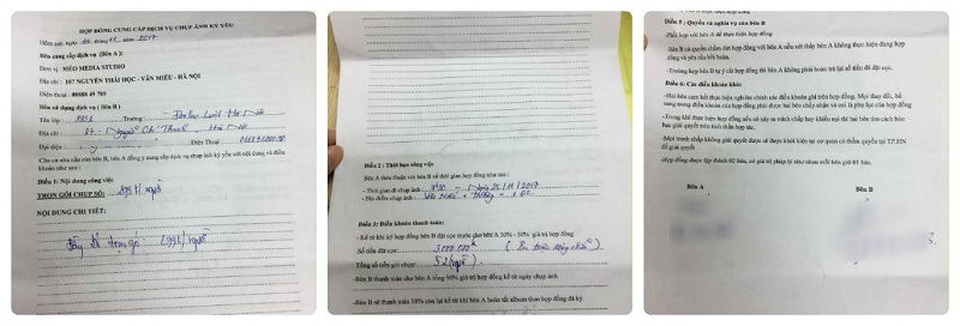 HỢP ĐỒNG CUNG CẤP DỊCH VỤ CHỤP ẢNH KỶ YẾU
Hôm nay, ngày 06 tháng 11 2017
Bên cung cấp dịch vụ (Bên A):
Đơn vị: MÈO MEDIA STUDIO
Địa chỉ: 107 NGUYỄN THÁI HỌC - VĂN MIẾU - HÀ NỘI
Điện thoại: 08888 49 789
Bên sử dụng dịch vụ (Bên B)
Tên lớp: Trường:
Địa chỉ: 87 - Nguyễn Chí Thanh - Hà Nội
Đại diện: Điện Thoại
Căn cứ nhu cầu của bên B, bên A đồng ý cung cấp dịch vụ chụp ảnh kỷ yếu với nội dung và điều
khoản như sau:
Điều 1: Nội dung công việc
TRỌN GÓI CHỤP SỐ: /người
NỘI DUNG CHI TIẾT:
Đầy đủ trọn gói: 299k/người
Điều 2: Thời hạn công việc
Bên A thỏa thuận với bên B về thời gian hợp đồng như sau:
- Thời gian đi chụp ảnh: - Ngày 25/11/2017
- Địa điểm chụp ảnh: Văn Miếu + Trường +
Điều 3: Điều khoản thanh toán:
- Kể từ khi ký hợp đồng bên B đặt cọc trước cho bên A 30% - 50% giá trị hợp đồng
Số tiền đặt cọc: 3.000.000đ (Ba triệu đồng chẵn)
Tổng số tiền gói chụp: 52 (người).
-Bên B thanh toán cho bên A tổng 90% giá trị hợp đồng kể từ ngày chụp ảnh
-Bên B sẽ thanh toán 10% còn lại kể từ khi bên A hoàn tất album theo hợp đồng đã ký
Điều 5: Quyền và nghĩa vụ của bên B
-Phối hợp với bên A để thực hiện hợp đồng
-Bên B có quyền chấm dứt hợp đồng với bên A nếu xét thấy bên A không thực hiện đúng hợp
đồng và yêu cầu bồi hoàn.
-Trường hợp bên B tự ý cắt hợp đồng thì bên A không phải hoàn trả lại số tiền đã đặt cọc.
Điều 6: Các điều khoản khác
-Hai bên cam kết thực hiện nghiêm chỉnh các điều khoản ghi trên hợp đồng. Mọi thay đổi, bổ
sung trong điều khoản của hợp đồng phải được hai bên chấp nhận và coi là phụ lục của hợp đồng.
-Trong khi thực hiện hợp đồng nếu có xảy ra tranh chấp hay khiếu nại thì hai bên tìm cách bàn
bạc giải quyết trên tinh thần hợp tác.
-Mọi tranh chấp không giải quyết được sẽ được khởi kiện tại cơ quan có thẩm quyền tại TP.HN
để giải quyết
-Hợp đồng được lập thành 02 bản, có giá trị pháp lý như nhau mỗi bên giữ 01 bản.
Bên A Bên B